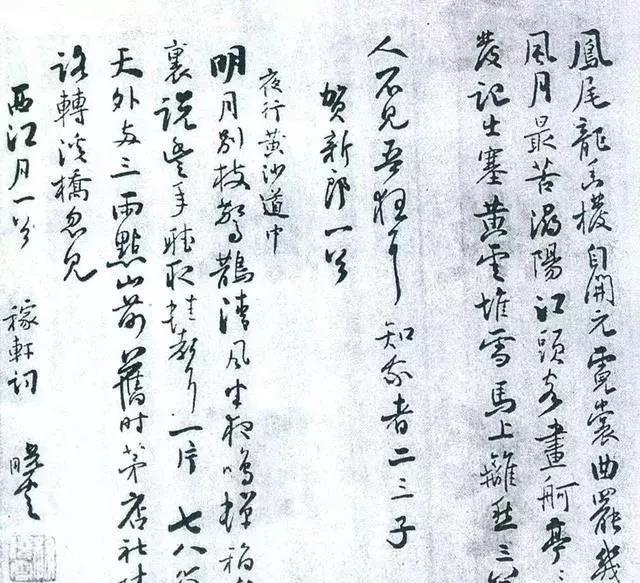 鳳尾龍香撥自開元霓裳曲罷幾
風月最苦潯陽江頭客畫舸亭
發記出塞黃雲堆雪馬上離愁三
人不見吾狂耳知我者二三子
賀新郎一首
夜行黃沙道中
明月別枝驚鵲清風半夜鳴蟬稻
裏說豐年聽取蛙聲一片七八個
天外兩三雨點山前舊時茅店社林
路轉溪橋忽見
西江月一首 稼軒詞